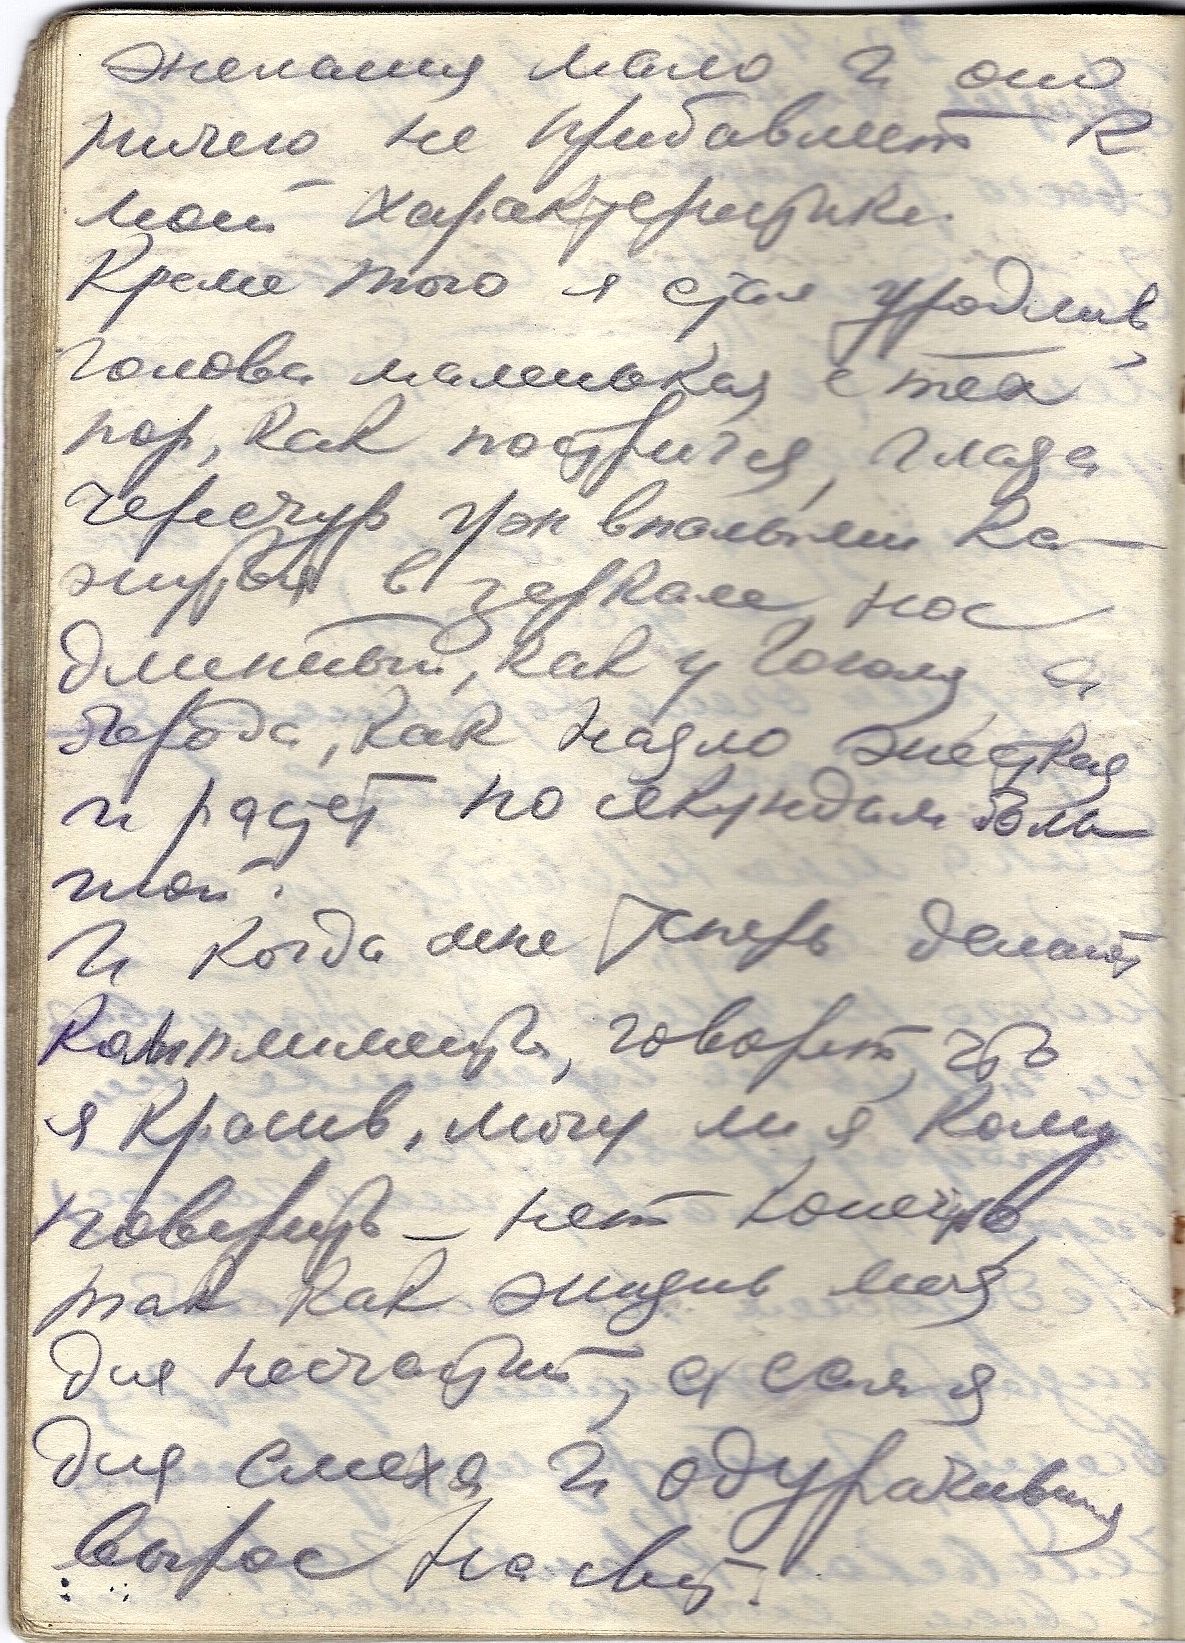 желания мало и оно
ничего не прибавляет к
моей характеристике.
Кроме того я стал уродлив,
голова маленькая с тех
пор, как постригся, глаза
чересчур уж впалыми ка-
жутся в зеркале, нос
длинный, как у Гоголя, а
борода, как назло жесткая
и растет по секундам боль-
шой.
И когда мне теперь делают
комплименты, говорят, что
я красив, могу ли я кому
поверить – нет конечно,
так как жизнь моя
для несчастий, а сам я
для смеха и одурачивания
вырос на свет.